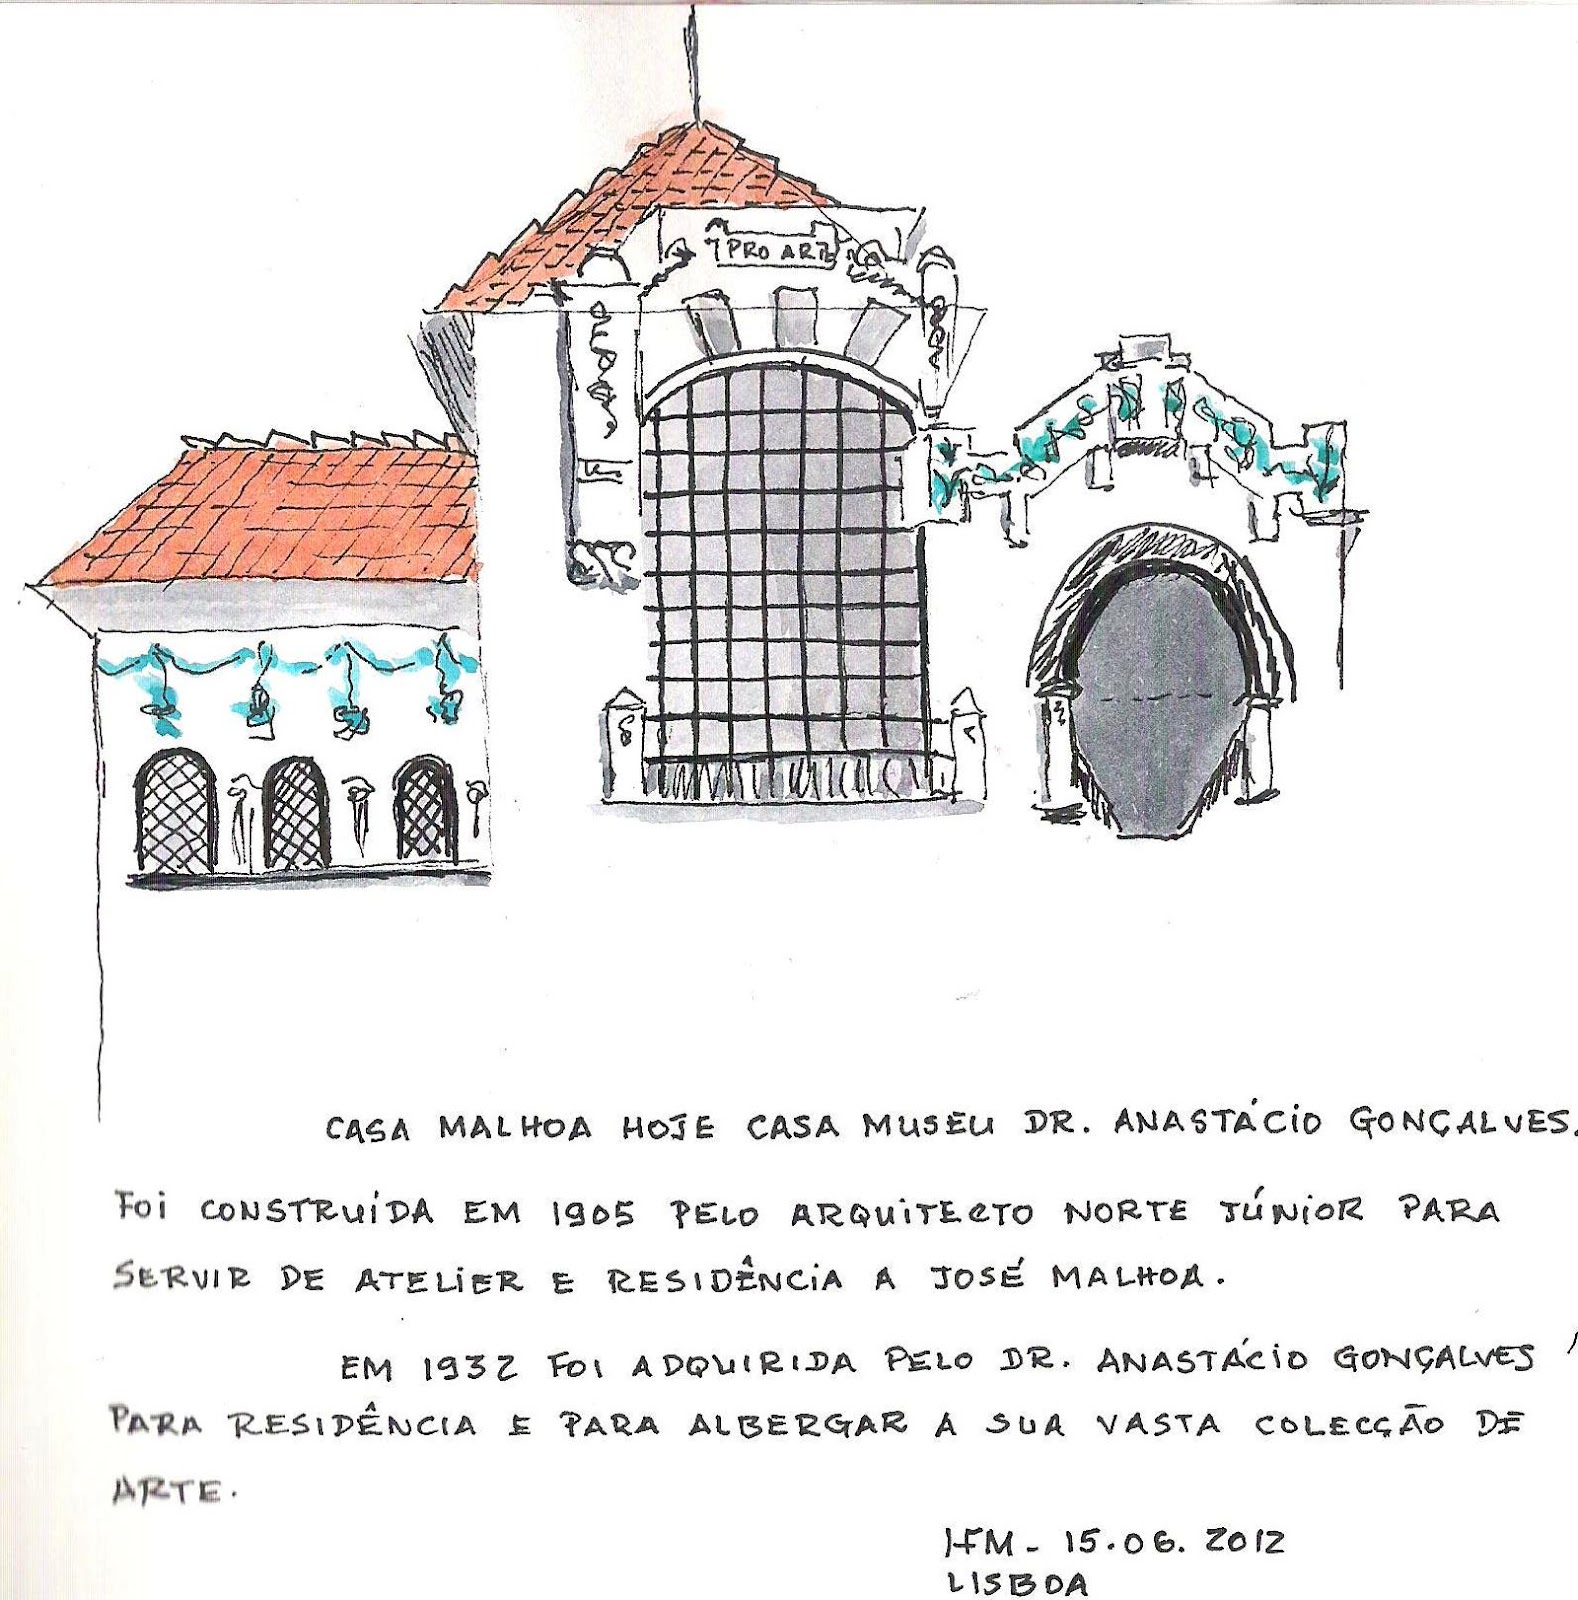 PRO ARTE
CASA MALHOA HOJE CASA MUSEU DR. ANASTÁCIO GONÇALVES.
FOI CONSTRUÍDA EM 1905 PELO ARQUITECTO NORTE JÚNIOR PARA
SERVIR DE ATELIER E RESIDÊNCIA A JOSÉ MALHOA.
EM 1932 FOI ADQUIRIDA PELO DR. ANASTÁCIO GONÇALVES,
PARA RESIDÊNCIA E PARA ALBERGAR A SUA VASTA COLECÇÃO DE
ARTE.
HFM - 15.06.2012
LISBOA